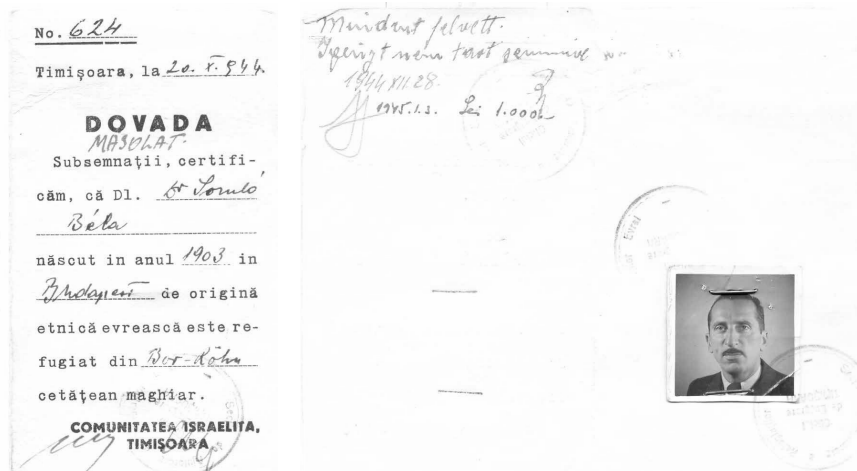 No. 624
Timişoara, la 20. X. 944.
DOVADA
MÁSOLAT.
Subsemnaţii, certifi-
căm, că Dl. Dr Somló
Béla
născut in anul 1903 in
Budapest de origină
etnică evrească este re-
fugiat din Bor-
cetăţean maghiar.
COMUNITATEA ISRAELITA,
TIMIŞOARA
Mindent felvett.
nem tart
1944 XII. 28.
1945.I.3. Lei 1.000